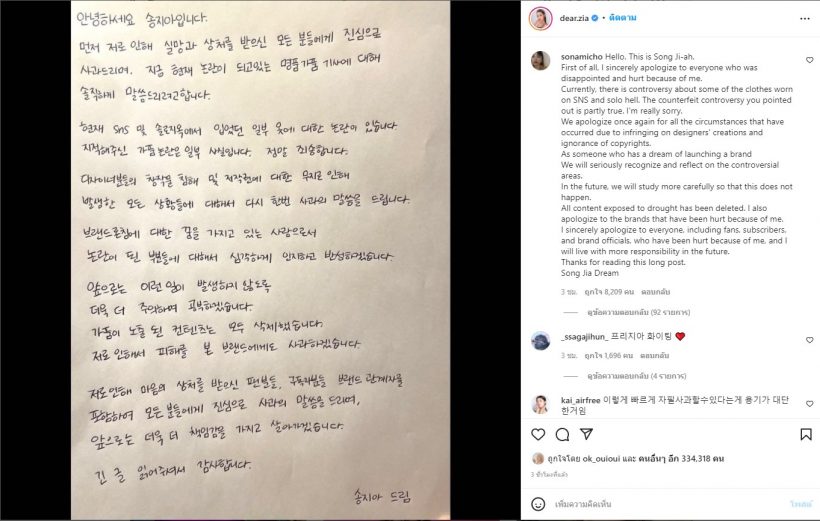 안녕하세요 송지아입니다.
먼저 저로 인해 실망과 상처를 받으신 모든 분들에게 진심으로
사과드리며, 지금 현재 논란이 되고있는 명품가품 기사에 대해
솔직하게 말씀드리려고합니다.
현재 SNS 및 솔로지옥에서 입었던 일부 옷에 대한 논란이 있습니다
지적해주신 가품논란은 일부 사실입니다. 정말 죄송합니다.
디자이너분들의 창작물 침해 및 저작권에 대한 무지로 인해
발생한 모든 상황들에 대해서 다시 한번 사과의 말씀을 드립니다.
브랜드론칭에 대한 꿈을 가지고 있는 사람으로서
논란이 된 부분들에 대해서 심각하게 인지하고 반성하겠습니다.
앞으로는 이런 일이 발생하지 않도록
더욱 더 주의하며 공부하겠습니다.
가품이 노출 된 컨텐츠는 모두 삭제했습니다.
저로 인해서 피해를 본 브랜드에게도 사과하겠습니다
저로인해 마음의 상처를 받으신 팬분들, 구독자분들 브랜드 관계자를
포함하여 모든 분들에게 진심으로 사과의 말씀을 드리며,
앞으로는 더욱 더 책임감을 가지고 살아가겠습니다.
긴 글 읽어주셔서 감사합니다.
송지아 드림
dear.zia • ติดตาม
sonamicho Hello. This is Song Ji-ah.
First of all, I sincerely apologize to everyone who was
disappointed and hurt because of me.
Currently, there is controversy about some of the clothes worn
on SNS and solo hell. The counterfeit controversy you pointed
out is partly true. I'm really sorry.
We apologize once again for all the circumstances that have
occurred due to infringing on designers' creations and
ignorance of copyrights.
As someone who has a dream of launching a brand
We will seriously recognize and reflect on the controversial
areas.
In the future, we will study more carefully so that this does not
happen.
All content exposed to drought has been deleted. I also
apologize to the brands that have been hurt because of me.
I sincerely apologize to everyone, including fans, subscribers,
and brand officials, who have been hurt because of me, and I
will live with more responsibility in the future.
Thanks for reading this long post.
Song Jia Dream
3 ชม. ถูกใจ 8,209 คน ตอบกลับ
ดูข้อความตอบกลับ (92 รายการ)
_ssagajihun_ 프리지아 화이팅 ❤️
3 ชม. ถูกใจ 1,696 คน ตอบกลับ
ดูข้อความตอบกลับ (4 รายการ)
kai_airfree 이렇게 빠르게 자필사과할수있다는게 용기가 대단
한거임
ถูกใจโดย ok_ouioui และ คนอื่นๆ อีก 334,318 คน
3 ชั่วโมงที่แล้ว
เพิ่มความคิดเห็น... โพสต์